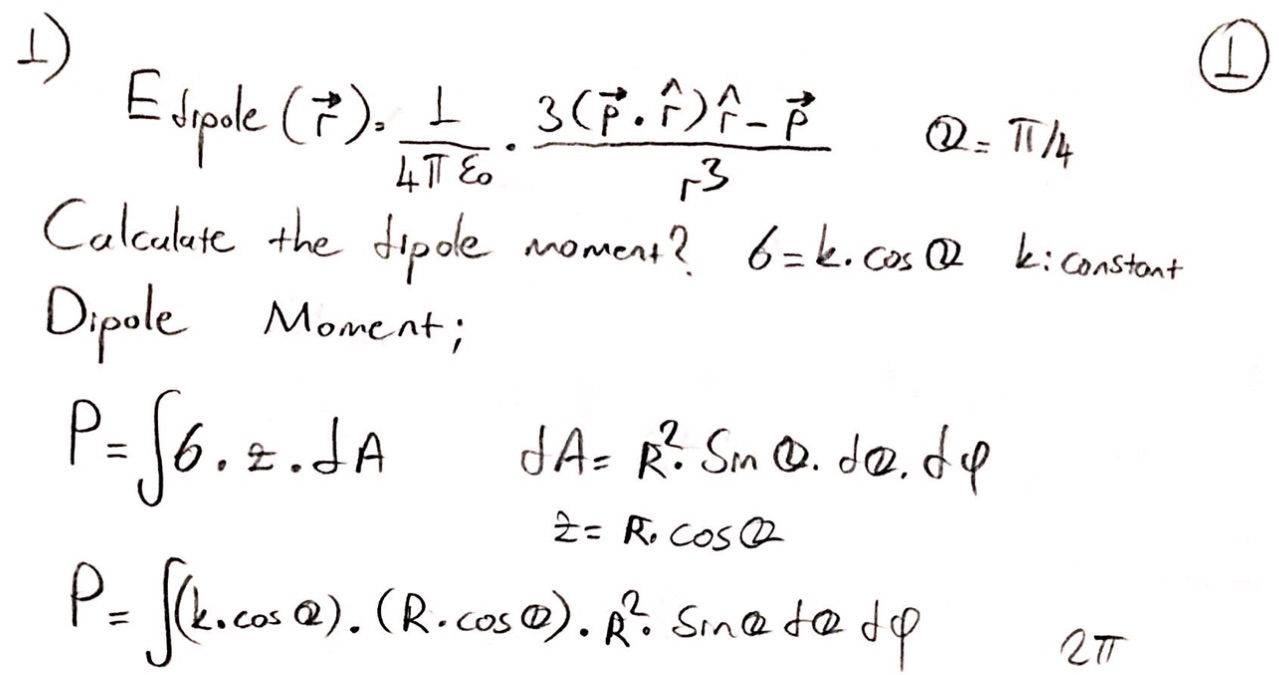 1) ①
E dipole (r⃗) = 1/(4πε₀) · (3(p⃗ · r̂) r̂ - p⃗)/r³ θ = π/4
Calculate the dipole moment? σ = k. cos θ k: constant
Dipole Moment;
P = ∫σ. z. dA dA = R². Sin θ. dθ. dφ
z = R. cos θ
P = ∫(k. cos θ). (R. cos θ). R². Sin θ dθ dφ 2π